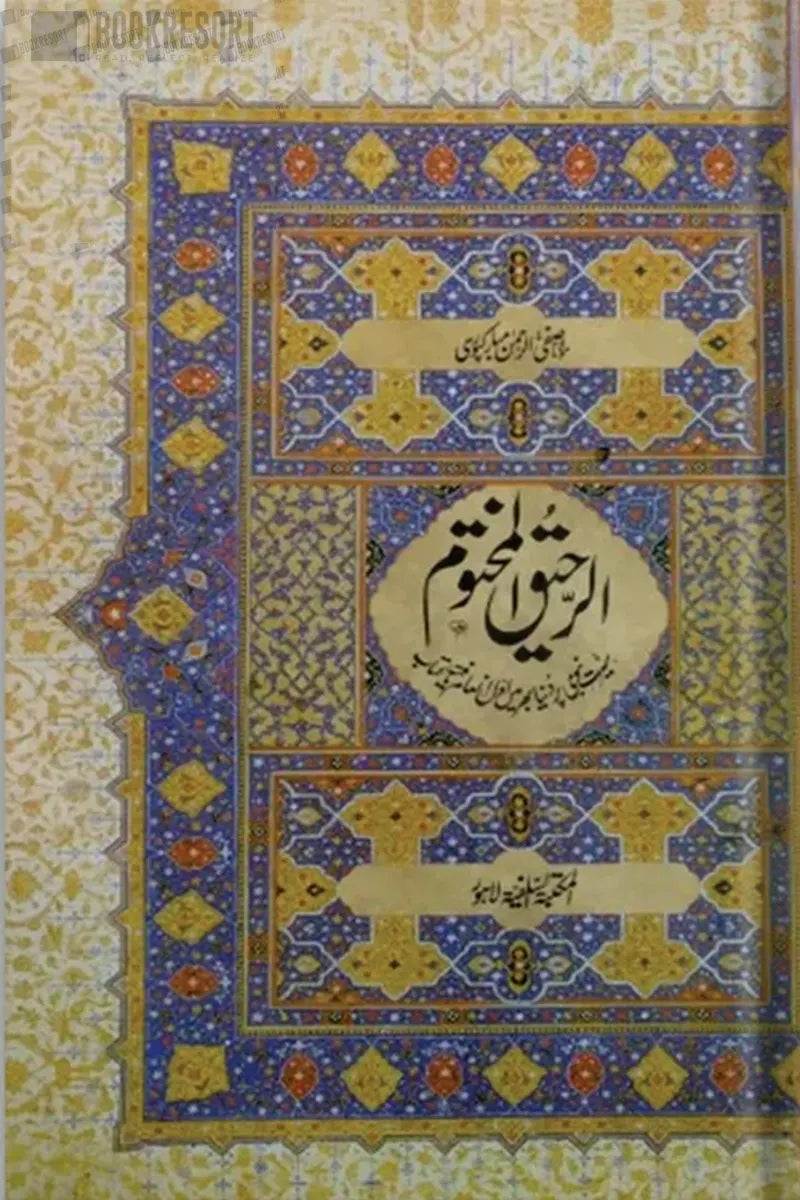 BOOKRESORT
READ, REFLECT, REALIZE
مولانا صفی الرحمٰن مبارکپوری
الرحیق المختوم
سیرت نبی پر دنیا بھر میں اول انعام یافتہ کتاب
المکتبۃ السلفیۃ لاہور